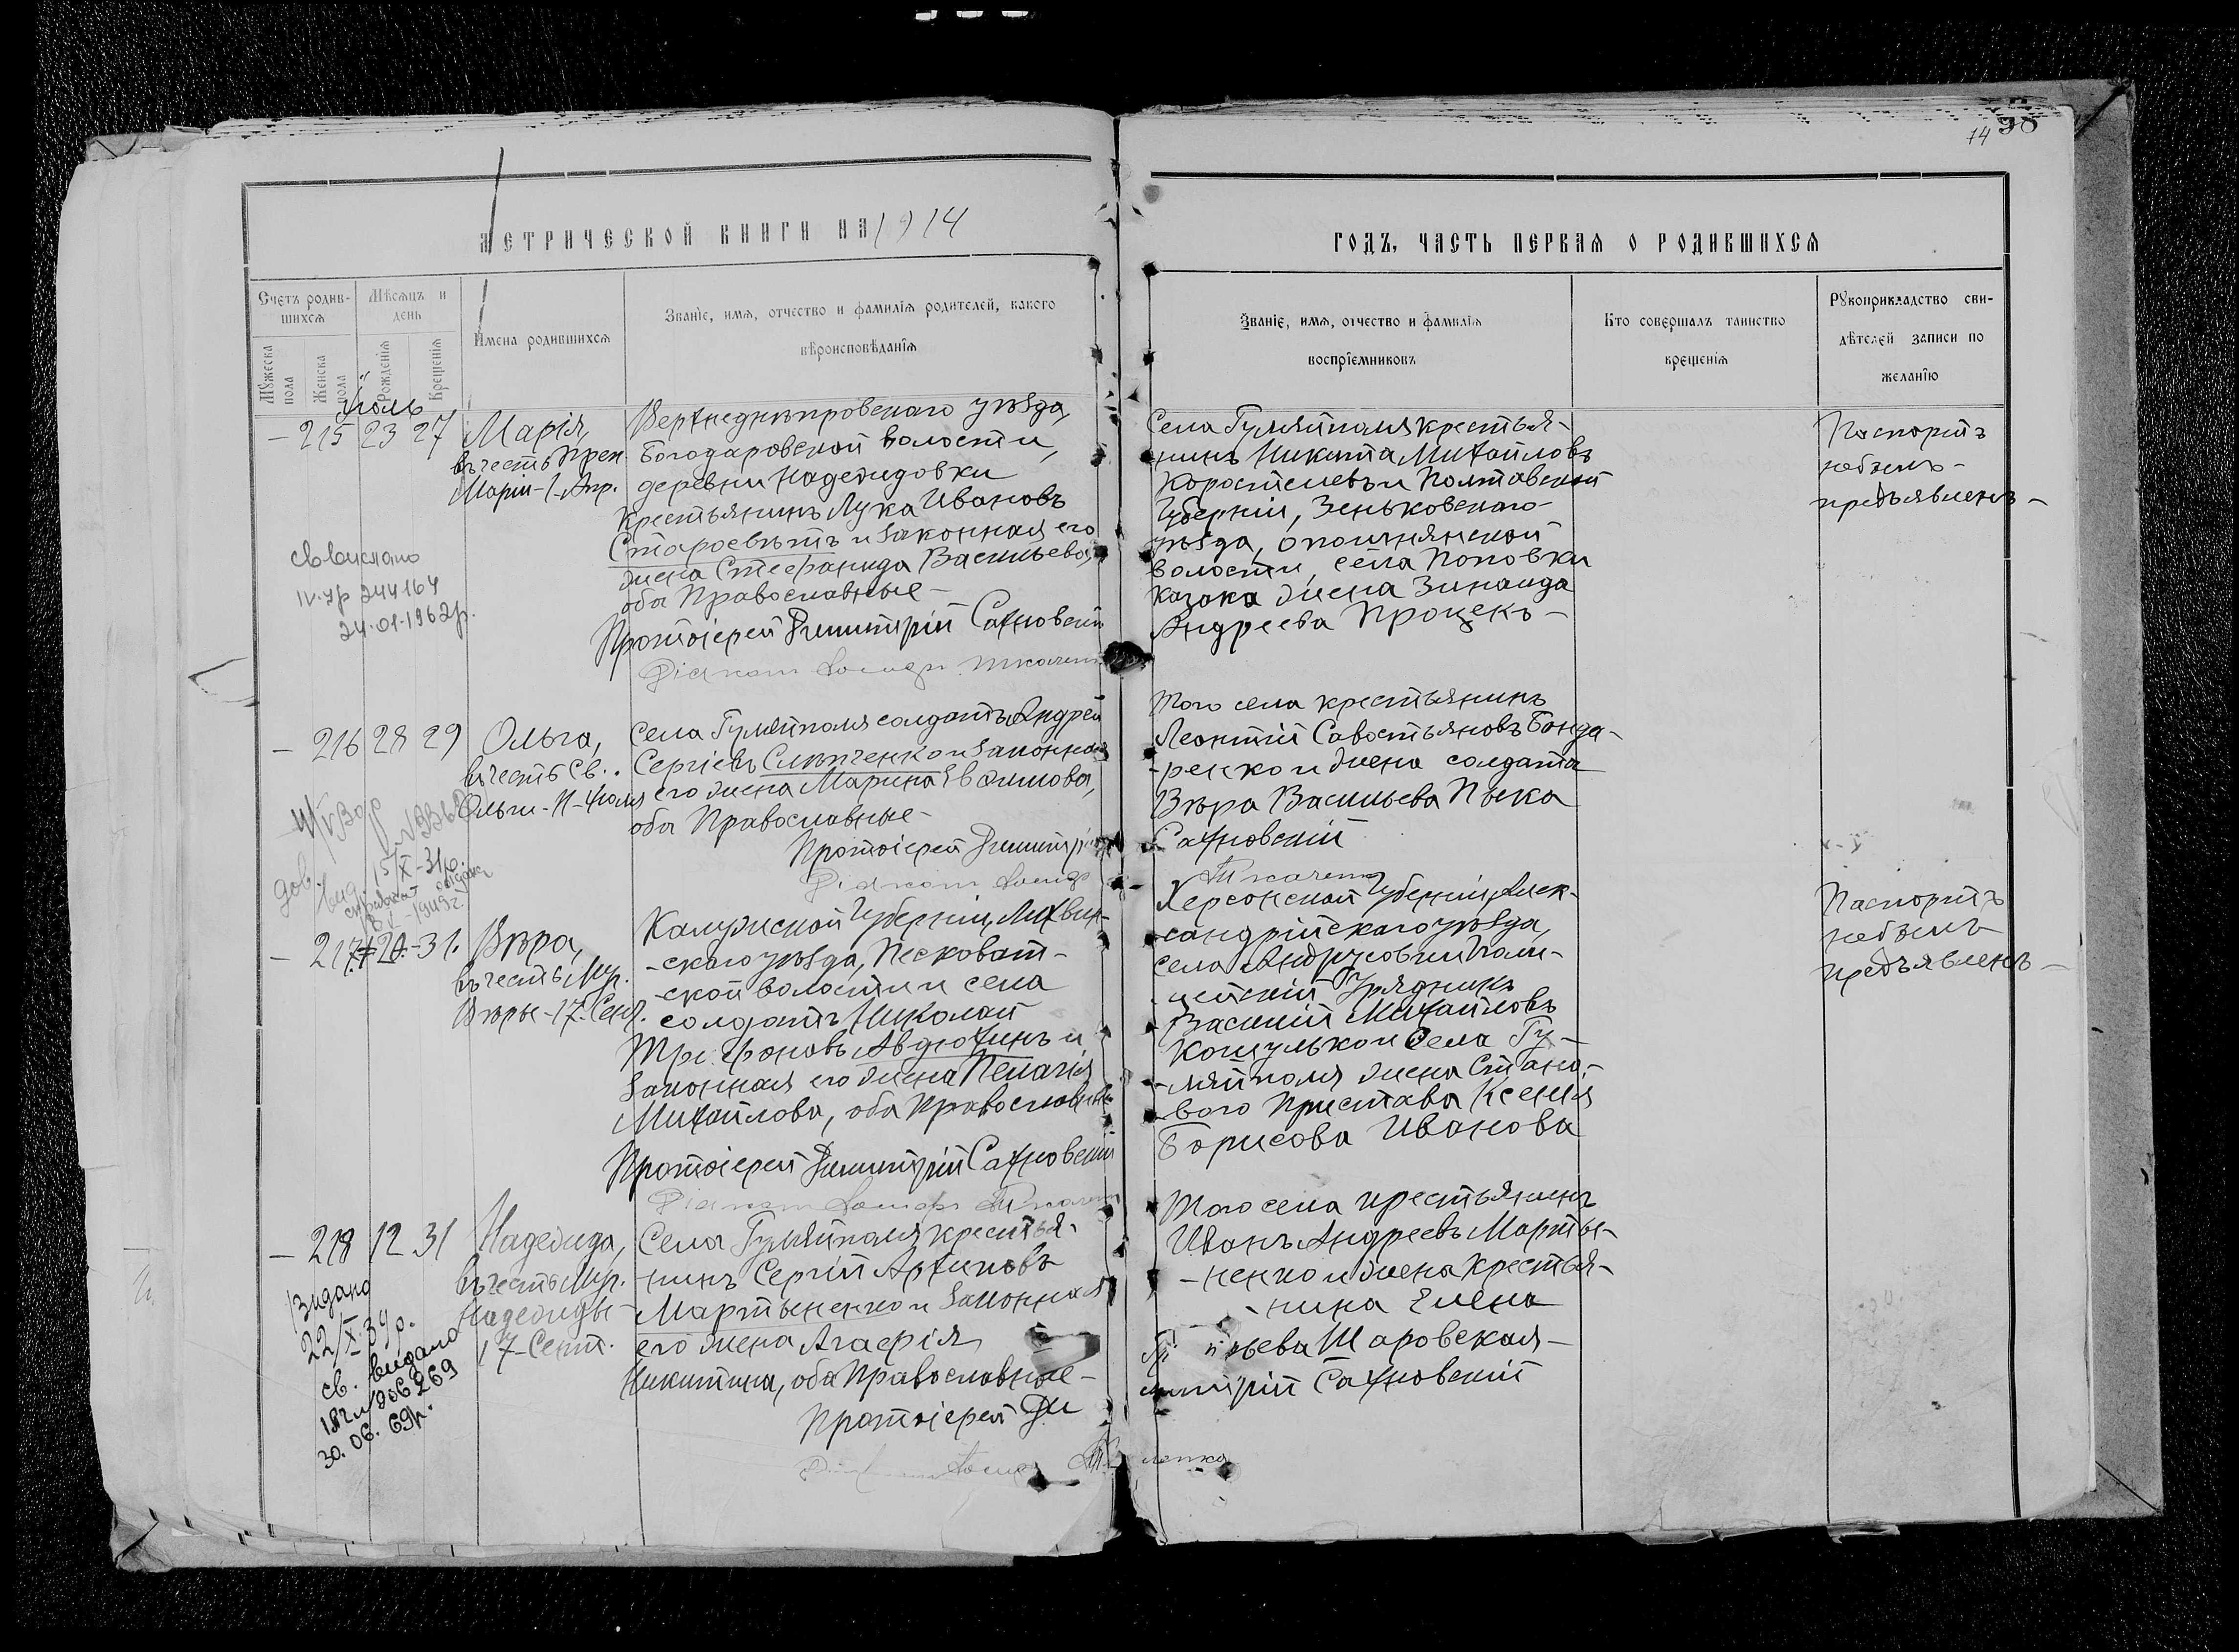 14 98
МЕТРИЧЕСКОЙ КНИГИ НА 1914
ГОДЪ, ЧАСТЬ ПЕРВАЯ О РОДИВШИХСЯ
Счетъ родив-
шихся
Мужеска пола
Женска пола
Мѣсяцъ и
день
Рожденія
Крещенія
Имена родившихся
Званіе, имя, отчество и фамилія родителей, какого
вѣроисповѣданія
Званіе, имя, отчество и фамилія
воспріемниковъ
Кто совершалъ таинство
крещенія
Рукоприкладство сви-
дѣтелей записи по
желанію
Іюль
- 215 23 27
Марія,
въ честь Преп.
Маріи - 1 - Апр.
Верхнеднѣпровскаго уѣзда,
Богодаровской волости,
деревни Надеждовки
крестьянинъ Лука Ивановъ
Старосвѣтъ и законная его
жена Стефанида Васильева,
оба Православные -
Протоіерей Димитрій Сахновскій
Села Гуляйполя крестья-
нинъ Никита Михайловъ
Коростелевъ и Полтавской
Губерніи, Зеньковскаго
уѣзда, Опошнянской
волости, села Поповки
казака жена Зинаида
Андреева Процекъ -
Паспортъ
не былъ -
предъявленъ -
IV-ур 244164
24.01.1962р.
- 216 28 29
Ольга,
въ честь Св.
Ольги - 11 - Іюля
Села Гуляйполя солдатъ Андрей
Сергіевъ Слѣпченко и законная
его жена Марина Евфимова,
оба Православные -
Протоіерей Димитрій
Того села крестьянинъ
Леонтій Савостьяновъ Бонда-
ренко и жена солдата
Вѣра Васильева Пыка
Сахновскій
15/X-31р.
1949г.
- 217 - 31.
Вѣра,
въ честь Муч.
Вѣры - 17 - Сент.
Калужской Губерніи, Лихвин-
скаго уѣзда, Песковат-
ской волости и села
солдатъ Николай
Трифоновъ Авдюхинъ и
законная его жена Пелагія
Михайлова, оба Православные
Протоіерей Димитрій Сахновскій
Херсонской Губерніи, Алек-
сандрійскаго уѣзда,
села Андрусовки Поли-
цейскій Урядникъ
Василій Михайловъ
Кошулько и Села Гу-
ляйполя жена Стано-
вого Пристава Ксенія
Борисова Иванова
Паспортъ
не былъ
предъявленъ -
- 218 12 31
Надежда,
въ честь Муч.
Надежды -
17 - Сент.
Села Гуляйполя крестья-
нинъ Сергій Архиповъ
Мартыненко и законная
его жена Агафія
Никитина, оба Православные -
Протоіерей Ди
Того села крестьянинъ
Иванъ Андреевъ Марты-
ненко и жена крестья-
нина Елена
Шаровская -
митрій Сахновскій
Видано
22/X.39р.
св. видано
30.06.69р.